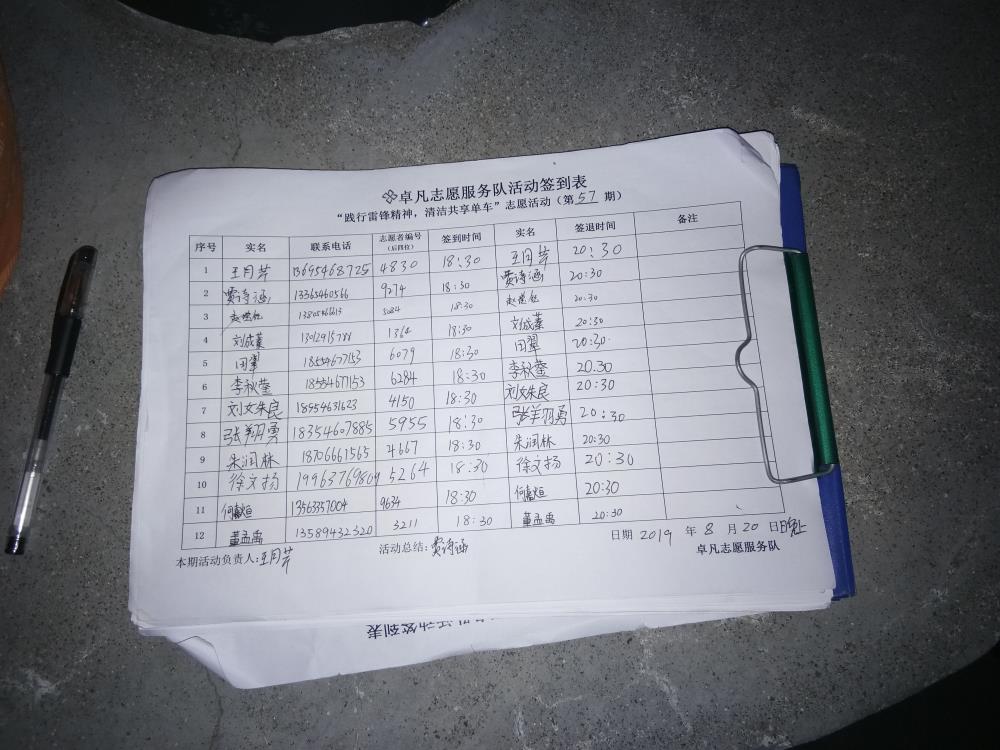 卓凡志愿服务队活动签到表
“践行雷锋精神，清洁共享单车”志愿活动（第 57 期）
序号 实名 联系电话 志愿者编号（后四位） 签到时间 实名 签退时间 备注
1 王月芹 13695468725 4830 18:30 王月芹 20:30
2 贾诗涵 13365460566 9274 18:30 贾诗涵 20:30
3 18:30 20:30
4 刘成蓁 1364 18:30 刘成蓁 20:30
5 田翠 18554677153 6079 18:30 田翠 20:30
6 李秋莹 18554677153 6284 18:30 李秋莹 20:30
7 刘文朱良 18954631623 4150 18:30 刘文朱良 20:30
8 张翔勇 18354607885 5955 18:30 张翔勇 20:30
9 朱润林 18706661565 4667 18:30 朱润林 20:30
10 徐文扬 19963769809 5264 18:30 徐文扬 20:30
11 13563357004 9634 18:30 20:30
12 董孟禹 13589432320 3211 18:30 董孟禹 20:30
本期活动负责人:王月芹 活动总结:贾诗涵 日期 2019 年 8 月 20 日晚上
卓凡志愿服务队
活动签到表